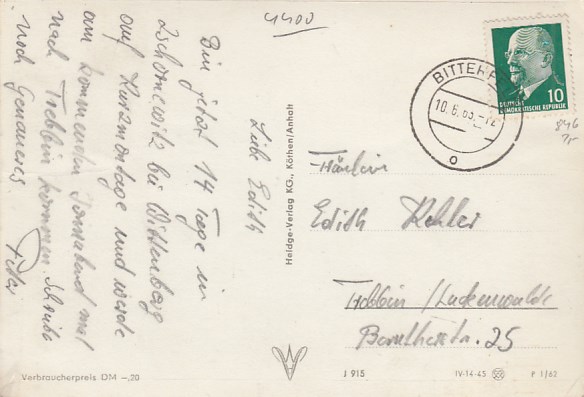 4400
Liebe Edith
Bin jetzt 14 Tage in
Zschornewitz bei Wittenberg
auf Kurzmontage und werde
am kommenden Sonnabend mal
nach Trebbin kommen. Schreibe
noch Genaueres.
Peter
Heldge-Verlag KG., Köthen/Anhalt
BITTERF
10.6.63.-12
DEUTSCHE
DEMOKRATISCHE REPUBLIK
10
846
Fräulein
Edith Kohler
Trebbin/Luckenwalde
Barutherstr. 25
Verbraucherpreis DM -,20
J 915
IV-14-45
P 1/62